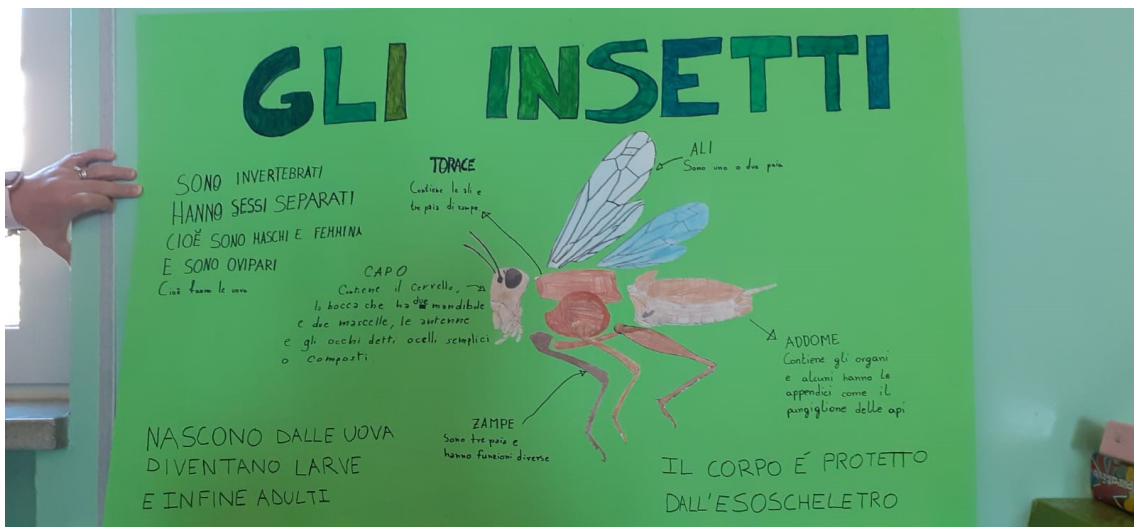 GLI INSETTI
SONO INVERTEBRATI
HANNO SESSI SEPARATI
CIOÈ SONO MASCHI E FEMMINA
E SONO OVIPARI
Cioè fanno le uova
TORACE
Contiene le ali e
tre paia di zampe
ALI
Sono una o due paia
CAPO
Contiene il cervello,
la bocca che ha due mandibole
e due mascelle, le antenne
e gli occhi detti ocelli semplici
o composti.
ADDOME
Contiene gli organi
e alcuni hanno le
appendici come il
pungiglione delle api
ZAMPE
Sono tre paia e
hanno funzioni diverse
NASCONO DALLE UOVA
DIVENTANO LARVE
E INFINE ADULTI
IL CORPO É PROTETTO
DALL'ESOSCHELETRO